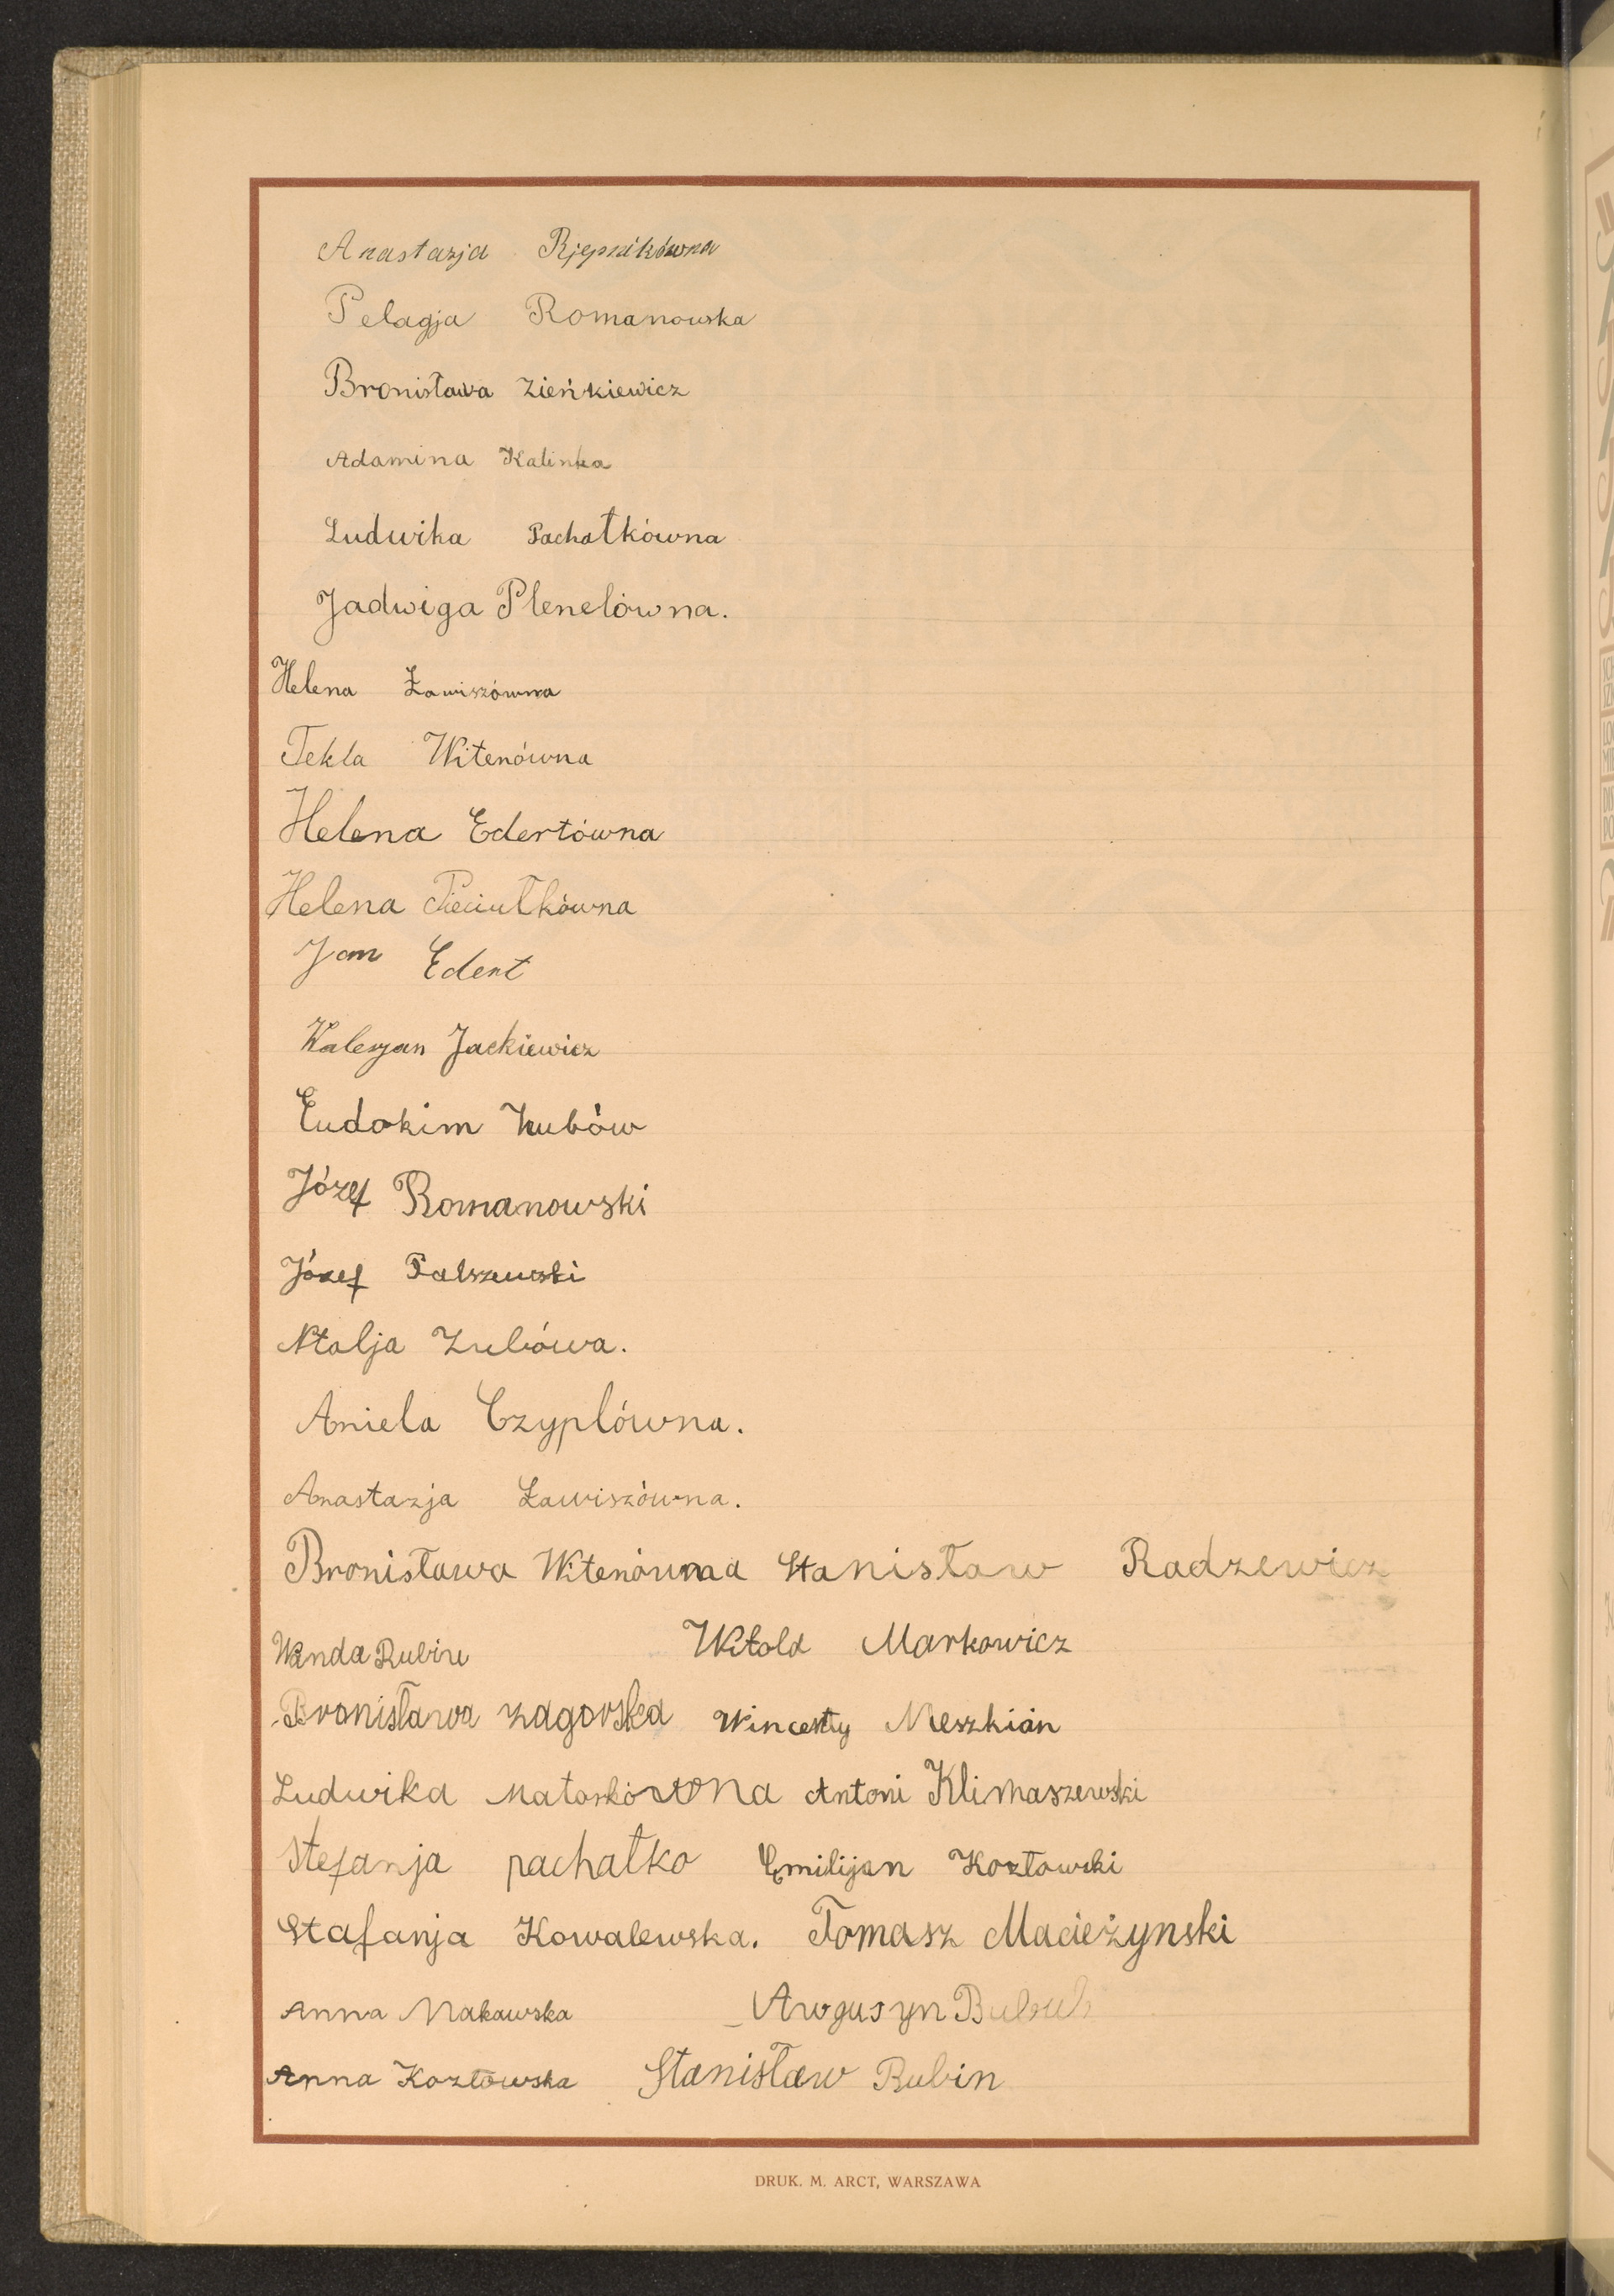 Anastazja Rjepnikówna
Pelagja Romanowska
Bronisława Zieńkiewicz
Adamina Kalinka
Ludwika Pachałkówna
Jadwiga Plenelówna.
Helena Zawiszówna
Tekla Witenówna
Helena Edertówna
Helena Pieciułkówna
Jan Edert
Walerjan Jackiewicz
Eudokim Zubów
Józef Romanowski
Józef Palszewski
Ntalja Zubówa.
Aniela Czyplówna.
Anastazja Zawiszówna.
Bronisława Witenówna Stanisław Radzewicz
Wanda Rubin Witold Markowicz
Bronisława Zagorska Wincenty Meszkian
Ludwika Matoskówna Antoni Klimaszewski
Stefanja pachałko Emilijan Kozłowski
Stafanja Kowalewska. Tomasz Macieżynski
Anna Makawska Awgusyn
Anna Kozłowska Stanisław Rubin
DRUK. M. ARCT, WARSZAWA